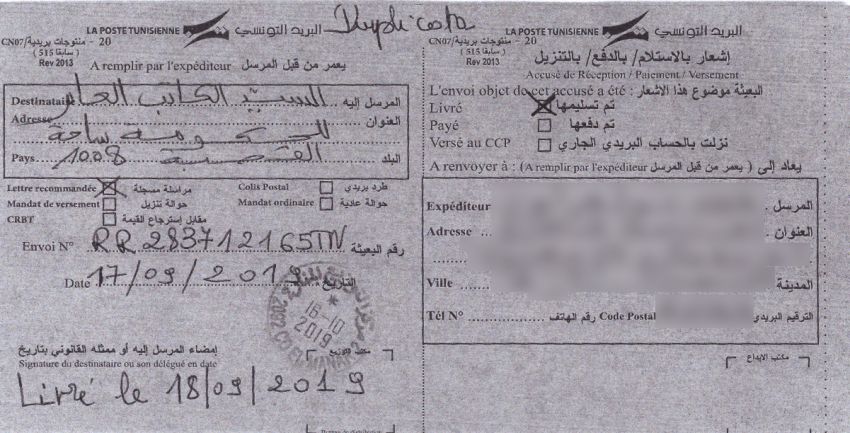 Duplicata
LA POSTE TUNISIENNE البريد التونسي
CN07/منتوجات بريدية - 20
(سابقا 515)
Rev 2013
A remplir par l'expéditeur يعمر من قبل المرسل
Destinataire السيد الكاتب العام المرسل إليه
Adresse للحكومة ساحة العنوان
القصبة
Pays 1008 البلد
Lettre recommandée مراسلة مسجلة Colis Postal طرد بريدي
Mandat de versement حوالة تنزيل Mandat ordinaire حوالة عادية
CRBT مقابل إسترجاع القيمة
Envoi N° RR283712165TN رقم البعيثة
Date 17/09/2019 التاريخ
16-10
2019
إمضاء المرسل إليه أو ممثله القانوني بتاريخ
Signature du destinataire ou son délégué en date
مكتب التوزيع
Livré le 18/09/2019
LA POSTE TUNISIENNE البريد التونسي
CN07/منتوجات بريدية - 20
(سابقا 515)
Rev 2013
إشعار بالاستلام/ بالدفع/ بالتنزيل
Accusé de Réception / Paiement / Versement
L'envoi objet de cet accusé a été : البعيثة موضوع هذا الاشعار :
Livré تم تسليمها
Payé تم دفعها
Versé au CCP نزلت بالحساب البريدي الجاري
A renvoyer à : (A remplir par l'expéditeur يعمر من قبل المرسل) يعاد إلى
Expéditeur المرسل
Adresse العنوان
Ville المدينة
Tél N° رقم الهاتف Code Postal الترقيم البريدي
مكتب الايداع